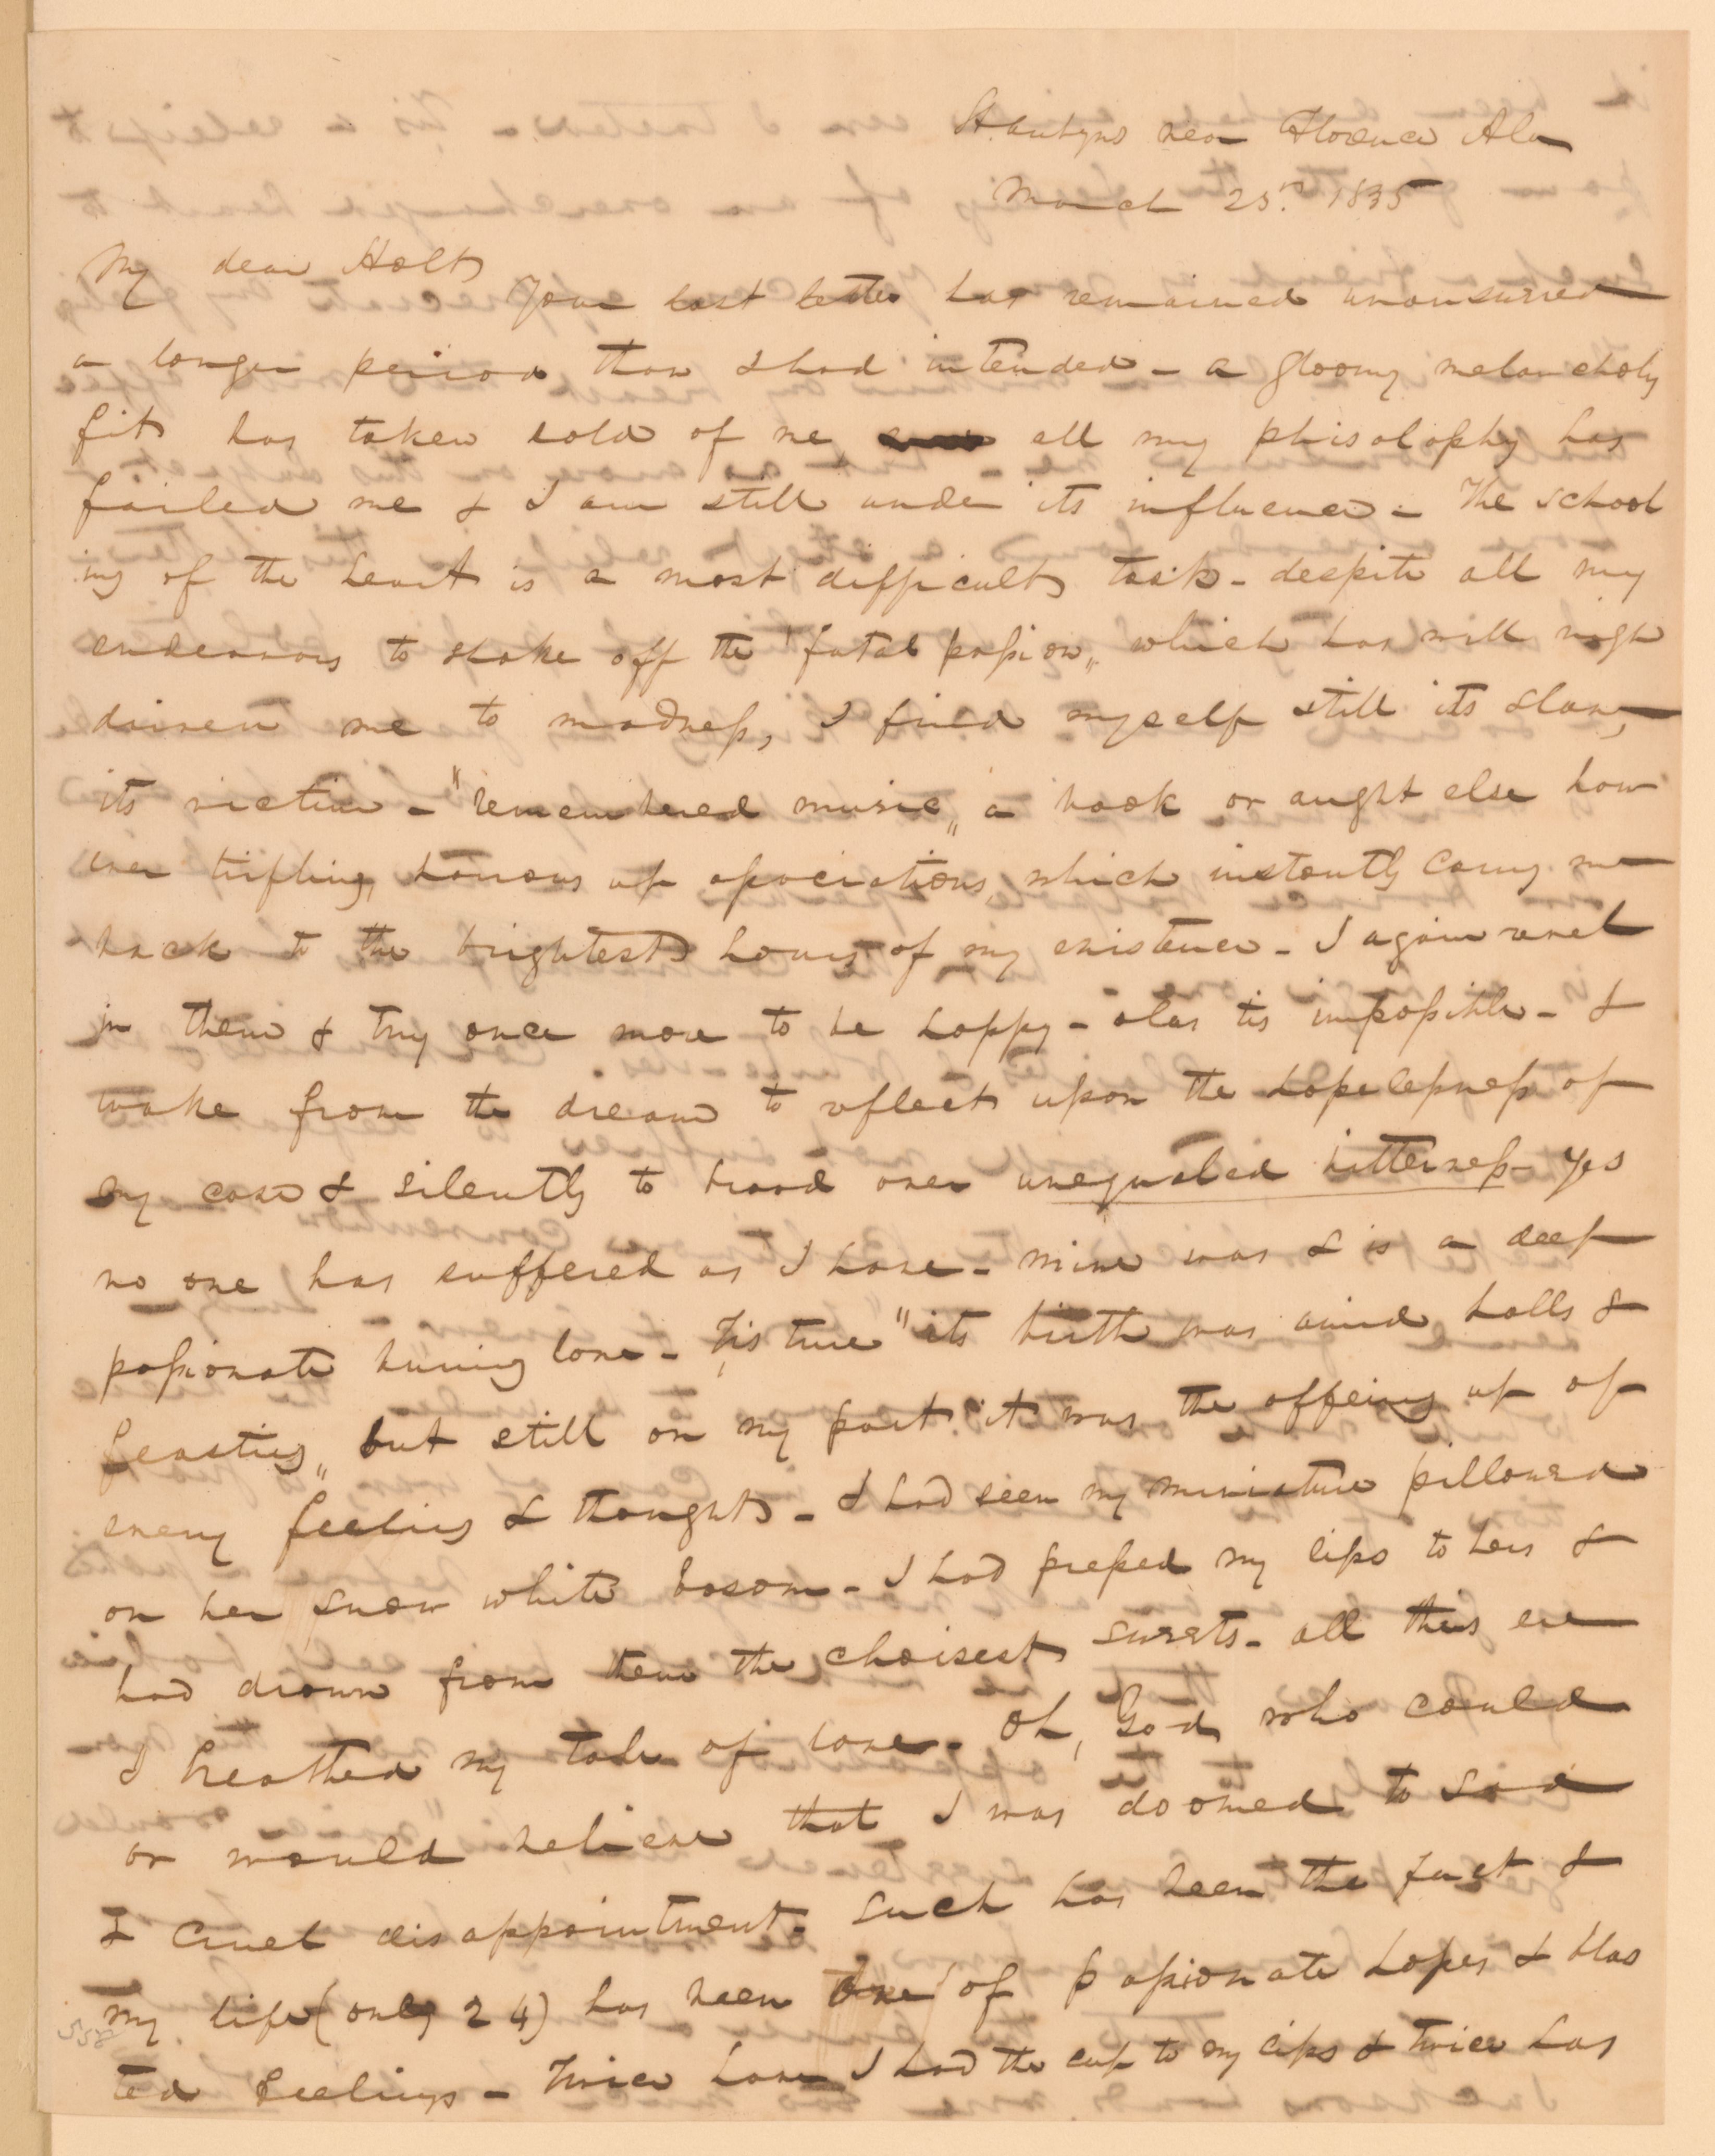 near Florence Ala
March 25th 1835
My dear Holt
Your last letter has remained unanswered
a longer period than I had intended - a gloomy melancholy
fit has taken hold of me all my phisolophy has
failed me & I am still under its influence - The school
ing of the heart is a most difficult task - despite all my
endeavors to shake off the "fatal passion" which has well nigh
driven me to madness, I find myself still its slave,
its victim - "remembered music" a book or aught else how
ever trifling, harrows up associations, which instantly carry me
back to the brightest hours of my existence - I again revel
in them & try once more to be happy - alas tis impossible - I
wake from the dream to reflect upon the hopelessness of
my case & silently to brood over unequaled bitterness - yes
no one has suffered as I have - mine was & is a deep
passionate burning love - Tis true "its birth was amid halls &
feasting" but still on my part it was the offering up of
every feeling & thought - I had seen my miniature pillowed
on her snow white bosom - I had pressed my lips to hers &
had drawn from them the choisest sweets - all this ere
I breathed my tale of love - Oh, God who could
or would believe that I was doomed to sad
& cruel disappointment - such has been the fact &
my life (only 24) has been one of passionate hopes & blas
ted feelings - Twice have I had the cup to my lips & twice has